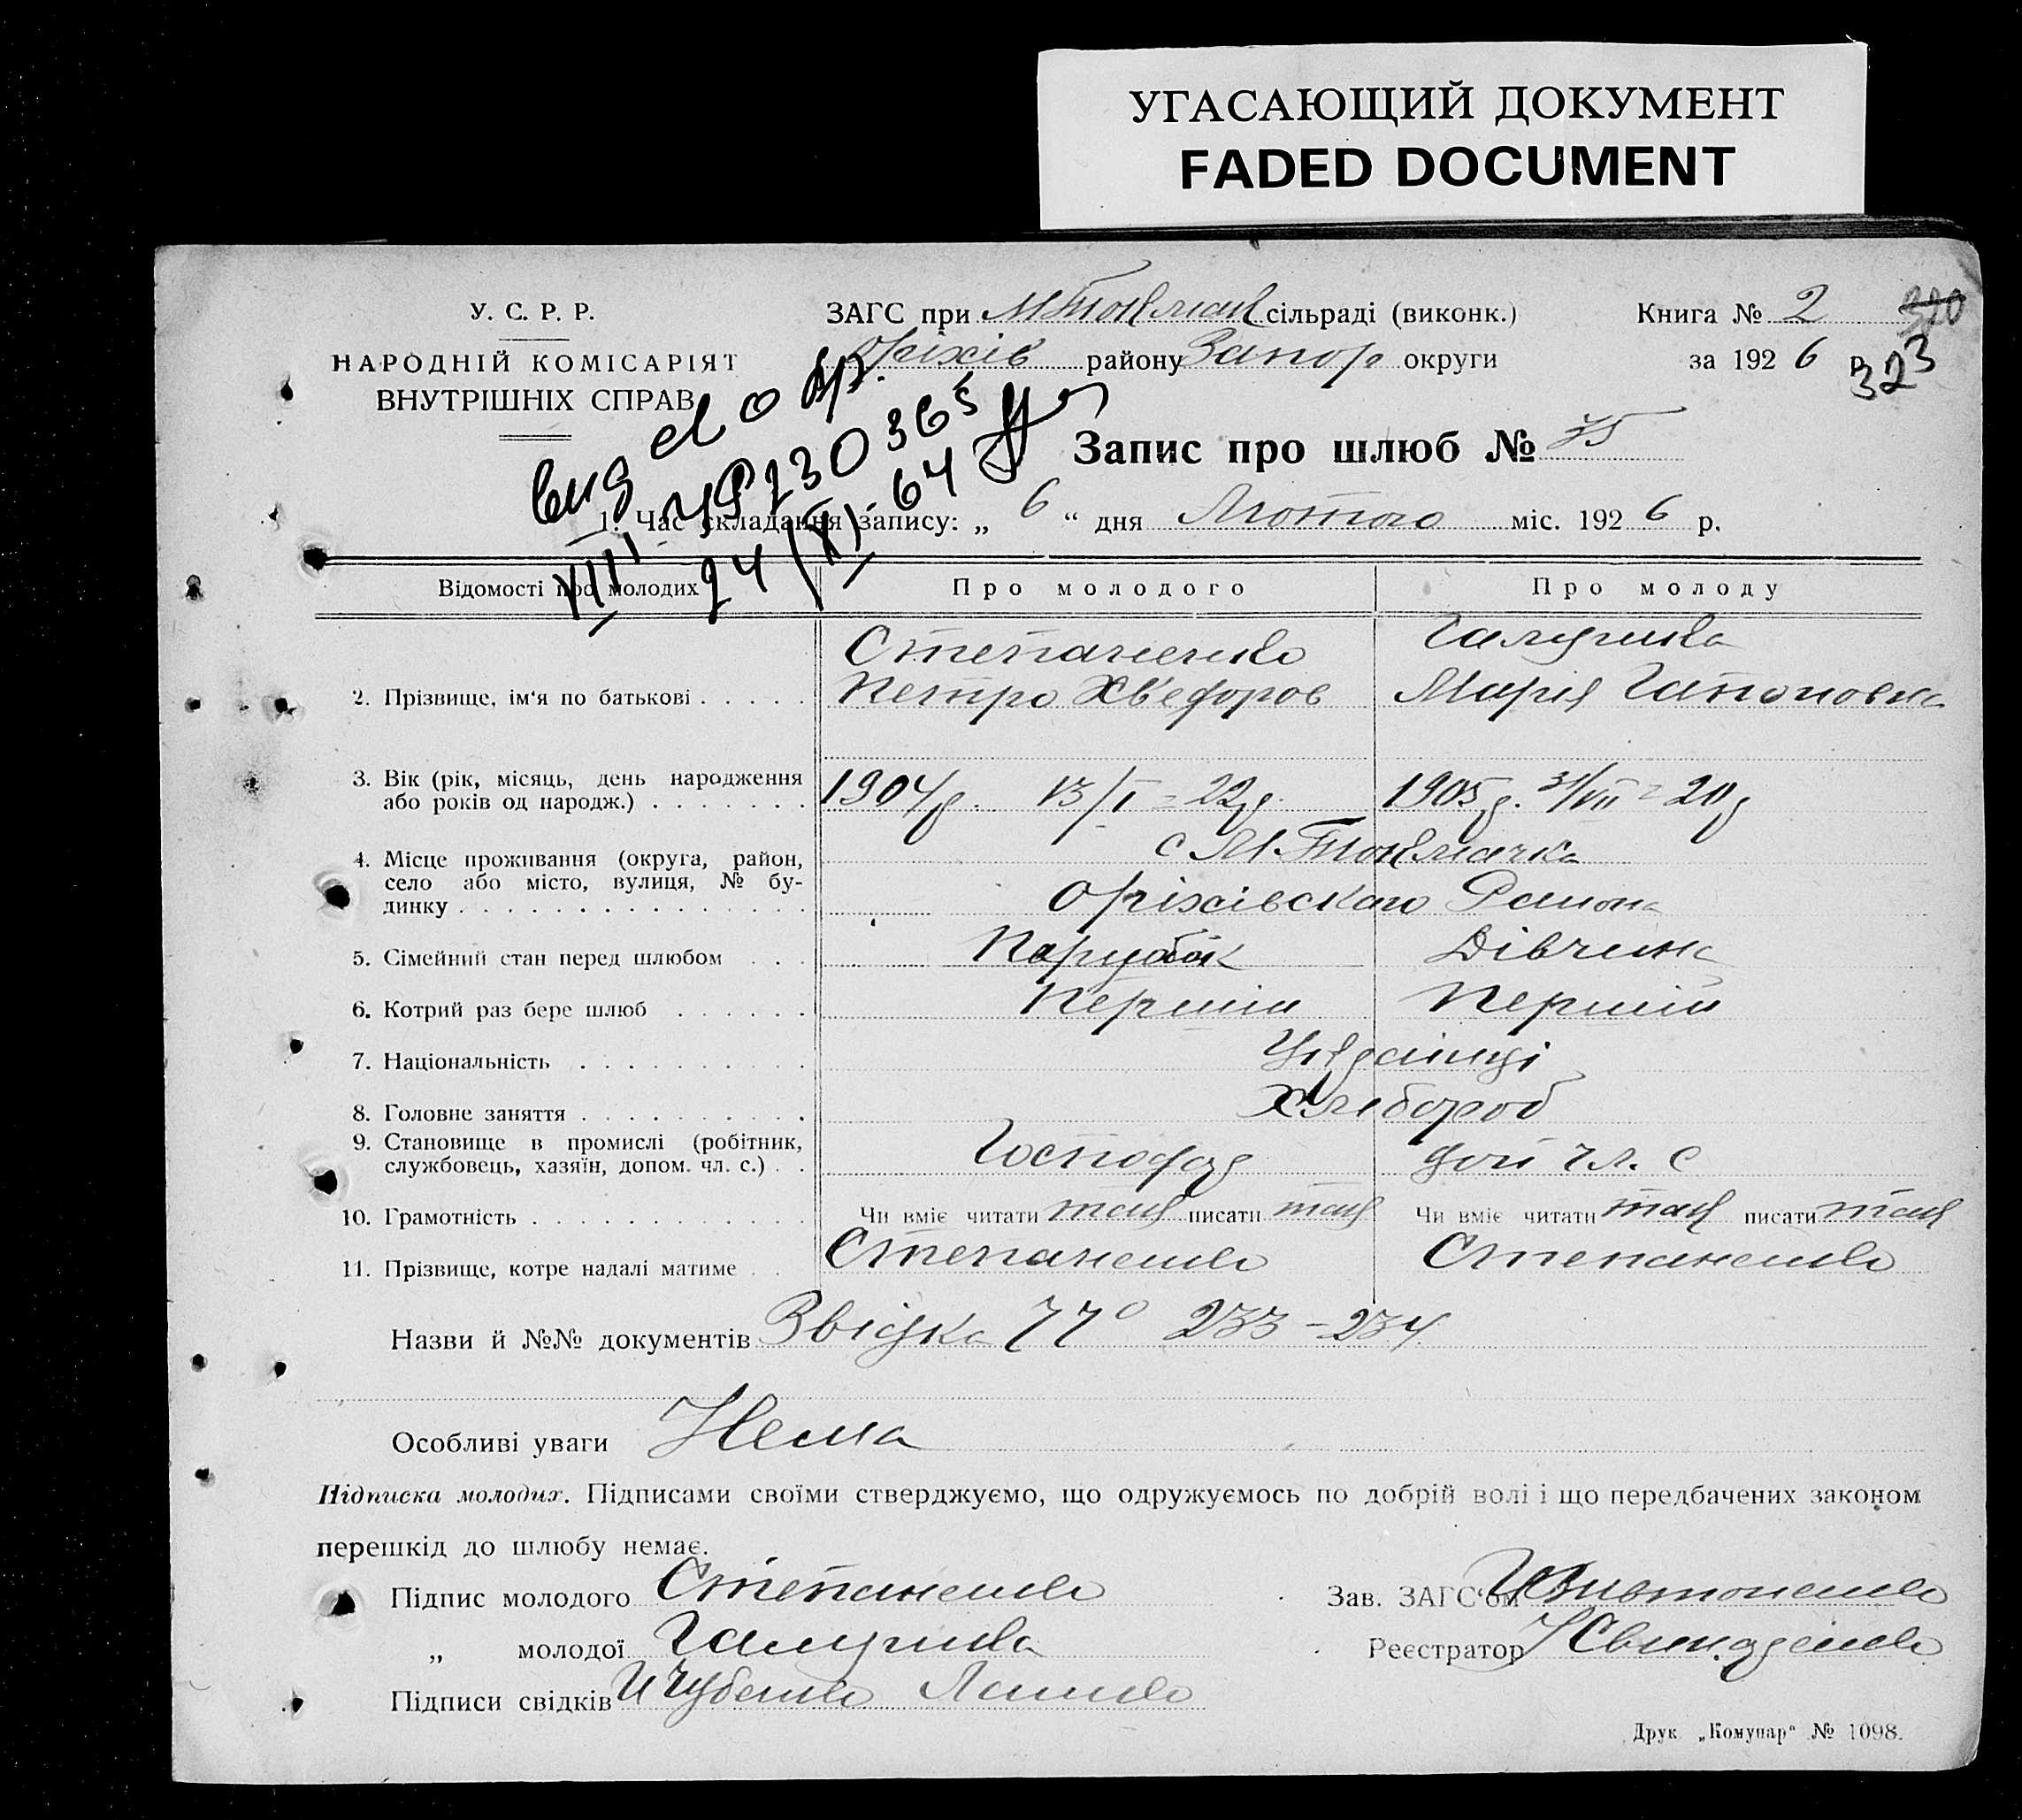 УГАСАЮЩИЙ ДОКУМЕНТ
FADED DOCUMENT
У. С. Р. Р.
НАРОДНІЙ КОМІСАРІЯТ
ВНУТРІШНІХ СПРАВ
ЗАГС при М Токмач сільраді (виконк.)
Оріхів району Запор округи
Книга № 2
320
за 192 6 р.
323
вид
230365
24 (XI) - 64
Запис про шлюб № 75
1. Час складання запису: „ 6 “ дня Лютого міс. 192 6 р.
Відомості про молодих Про молодого Про молоду
Степаненко Галушка
2. Прізвище, ім‘я по батькові Петро Хведоров Марія Гапоновна
3. Вік (рік, місяць, день народження
або років од народж.) 1904 р. 13/I - 22 р. 1905 р. 31/VII - 20 р
4. Місце проживання (округа, район, с М. Токмачка
село або місто, вулиця, № бу-
динку Оріхівского Района
5. Сімейний стан перед шлюбом Парубок Дівчина
6. Котрий раз бере шлюб Перший Перший
7. Національність Українці
8. Головне заняття Хлібороб
9. Становище в промислі (робітник,
службовець, хазяїн, допом. чл. с.) Господар доп чл. с
10. Грамотність Чи вміє читати так писати так Чи вміє читати так писати так
11. Прізвище, котре надалі матиме Степаненко Степаненко
Назви й №№ документів Звідка 233 - 234
Особливі уваги Нема
Підписка молодих. Підписами своїми стверджуємо, що одружуємось по добрій волі і що передбачених законом
перешкід до шлюбу немає.
Підпис молодого Степаненко Зав. ЗАГС‘ом
„ молодої Галушка Реєстратор
Підписи свідків И Чубенко
Друк „Комунар“ № 1098.